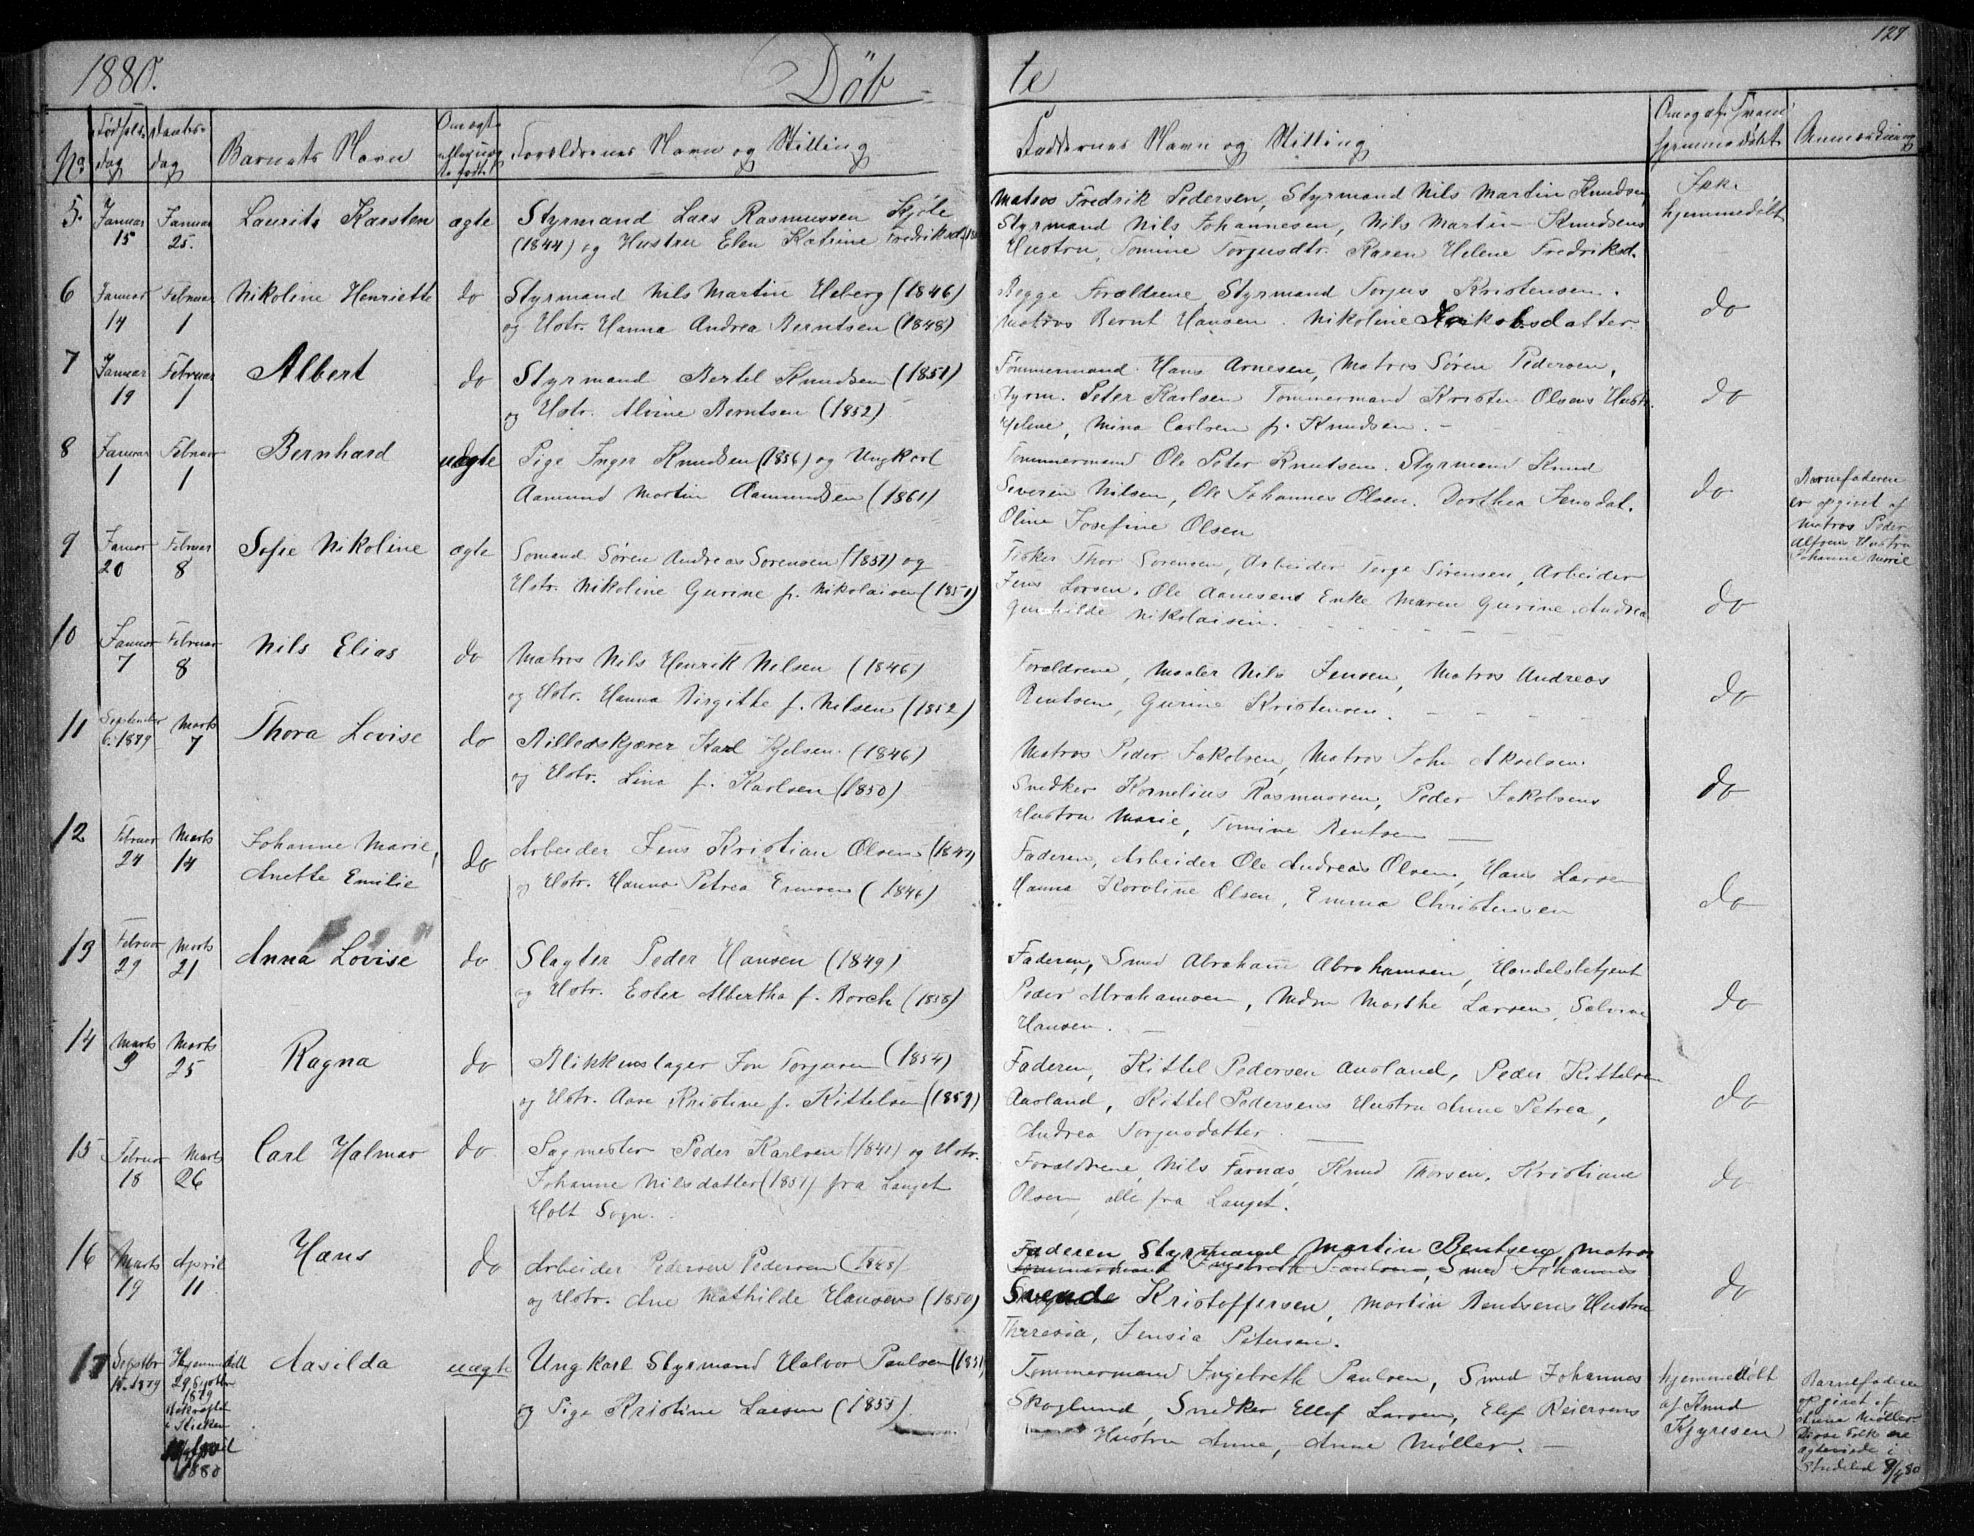 1880.
Döb-
te
127
No
Fødsels-
dag
Daabs-
dag
Barnets Navn
Om ægte
eller uæg-
te født.
Forældrenes Navn og Stilling
Faddernes Navn og Stilling
hjemmedøbt
5. Januar 15 Januar 25. Laurits Karsten ægte
Styrmand Lars Rasmussen Kjøle
(1844) og Hustru Elen Katrine Fredriksd.
Matros Fredrik Pedersen, Styrmand Nils Martin Knudsen
Styrmand Nils Johannesen, Nils Martin Knudsens
Hustru, Tomine Torjusdtr. Karen Helene Fredriksd.
Ikke
hjemmedøbt
6 Januar 14 Februar 1 Nikoline Henriette do
Styrmand Nils Martin Heberg (1846)
og Hstr. Hanna Andrea Berntsen (1848)
Begge Forældrene, Styrmand Torjus Kristensen.
Matros Bernt Hansen. Nikoline Jakobsdatter.
do
7 Januar 19 Februar 1 Albert do
Styrmand Bertel Knudsen (1851)
og Hstr. Alvine Berntsen (1852)
Tømmermand Hans Arnesen, Matros Søren Pedersen,
Styrm. Peter Karlsen Tømmermand Kristen Olsens Hustr.
Helene, Mina Carlsen f. Knudsen.
do
8 Januar 1 Februar 1 Bernhard uægte
Pige Inger Knudsen (1856) og Ungkarl
Aamund Martin Aamundsen (1861)
Tømmermand Ole Peter Knutsen. Styrmand Knud
Severin Nilsen, Ole Johannes Olsen. Dorthea Jensdat.
Oline Josefine Olsen
do
Barnefaderen
er opgivet af
Matros Peder
Alfsens Hustru
Johanne Marie
9 Januar 20 Februar 8 Sofie Nikoline ægte
Sømand Søren Andreas Sørensen (1851) og
Hstr. Nikoline Gurine f. Nikolaisen (1851)
Fisker Thor Sørensen, Arbeider Terje Sørensen, Arbeider
Jens Larsen, Ole Aanesens Enke Maren Gurine. Andrea
Gunhilde Nikolaisen.
do
10 Januar 7 Februar 8 Nils Elias do
Matros Nils Henrik Nilsen (1846)
og Hstr. Hanna Birgitte f. Nilsen (1852)
Forældrene, Maaler Nils Jensen, Matros Andreas
Bentsen, Gurine Kristensen.
do
11 September 6. 1879 Marts 7 Thora Lovise do
Billedskjærer Karl Kjelsen. (1846)
og Hstr. Lina f. Karlsen (1850)
Matros Peder Jakobsen, Matros John Akselsen
Snedker Kornelius Rasmussen, Peder Jakobsens
Hustru Marie, Tomine Bentsen
do
12 Februar 24 Marts 14 Johanne Marie,
Anette Emilie do
Arbeider Jens Kristian Olsen
og Hstr. Hanna Petrea Ensoen (1846)
Faderen, Arbeider Ole Andreas Olsen, Hans Larsen
Hanna Karoline Olsen, Emma Christensen
do
13 Februar 29 Marts 21 Anna Lovise do
Slagter Peder Hansen (1849)
og Hstr. Ester Albertha f. Borch (1858)
Faderen, Smed Abraham Abrahamsen, Handelsbetjent
Peder Abrahamsen, Mdm Marthe Larsen, Salvine
Hansen.
do
14 Marts 9 Marts 25 Ragna do
Blikkenslager Jon Torjusen (1854)
og Hstr. Aase Kristine f. Kittelsen (1859)
Faderen, Kittel Pedersen Ausland, Peder Kittelsen
Ausland, Kittel Pedersens Hustru Anne Petrea,
Andrea Torjusdatter.
do
15 Februar 18 Marts 26 Carl Halmar do
Sagmester Peder Karlsen (1841) og Hstr.
Johanne Nilsdatter (1851) fra Langet
Holt Sogn.
Forældrene, Nils Farnæs, Knud Thorsen, Kristiane
Olsen, alle fra Langet.
do
16 Marts 19 April 11 Hans do
Arbeider Pedersen Pedersen (1848)
og Hstr. Ane Mathilde Hansen (1850)
Faderen Styrmand Martin Bentsen, Matros
Tømmermand Ingebreth Paulsen, Smed Johannes
Svende Kristoffersen, Martin Bentsens Hustru
Theresia, Jensia Petersen.
do
17 Septbr 14. 1879 Hjemmedøbt
29 Septbr
1879
i Kirken
April
1880
Aasilda uægte
Ungkarl Styrmand Halvor Paulsen (1851)
og Pige Kristine Larsen (1855)
Tømmermand Ingebreth Paulsen, Smed Johannes
Skoglund, Snedker Ellef Larsen, Elef Reiersens
Hustru Anne, Anne Møller.
hjemmedøbt
af Knud
Kjyresen
Barnefaderen
opgivet af
Anna Møller
Disse Folk ere
ægteviede i